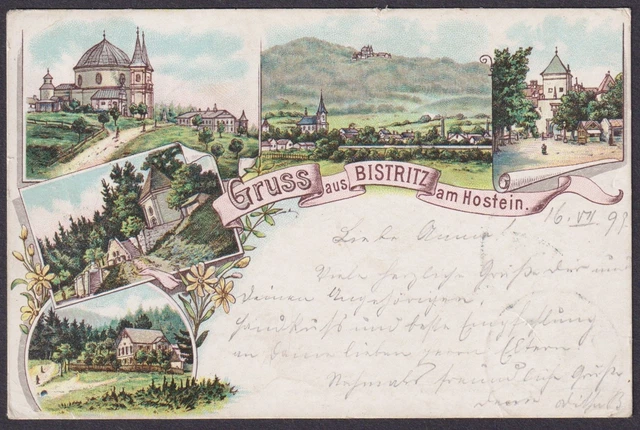 Gruss aus BISTRITZ am Hostein.
16. VII 97
Liebe Anna!
Viele herzliche Grüße Dir und
Deinen Angehörigen!
Handkuss und beste Empfehlung
an Deine lieben Eltern
Nochmals freundliche Grüße